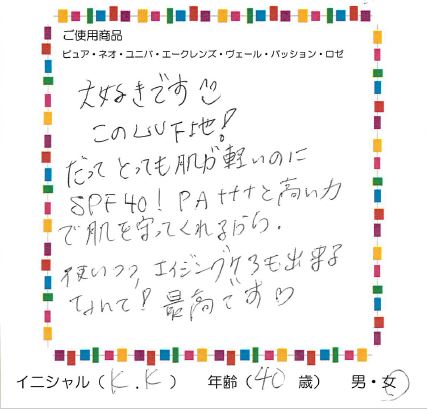 ご使用商品
ピュア・ネオ・ユニバ・エークレンズ・ヴェール・パッション・ロゼ
大好きです
このUV下地!
だってとっても肌が軽いのに
SPF40! PA+++と高い力
で肌を守ってくれるから。
使いつつ、エイジングケアも出来る
なんて! 最高です♡
イニシャル(K.K) 年齢(40歳) 男・女